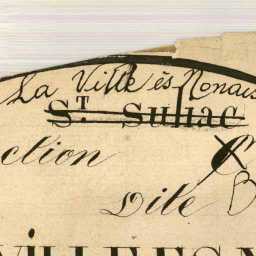 La Ville ès Nonais
St Suliac
ction C
Dite B
VILLE ES N